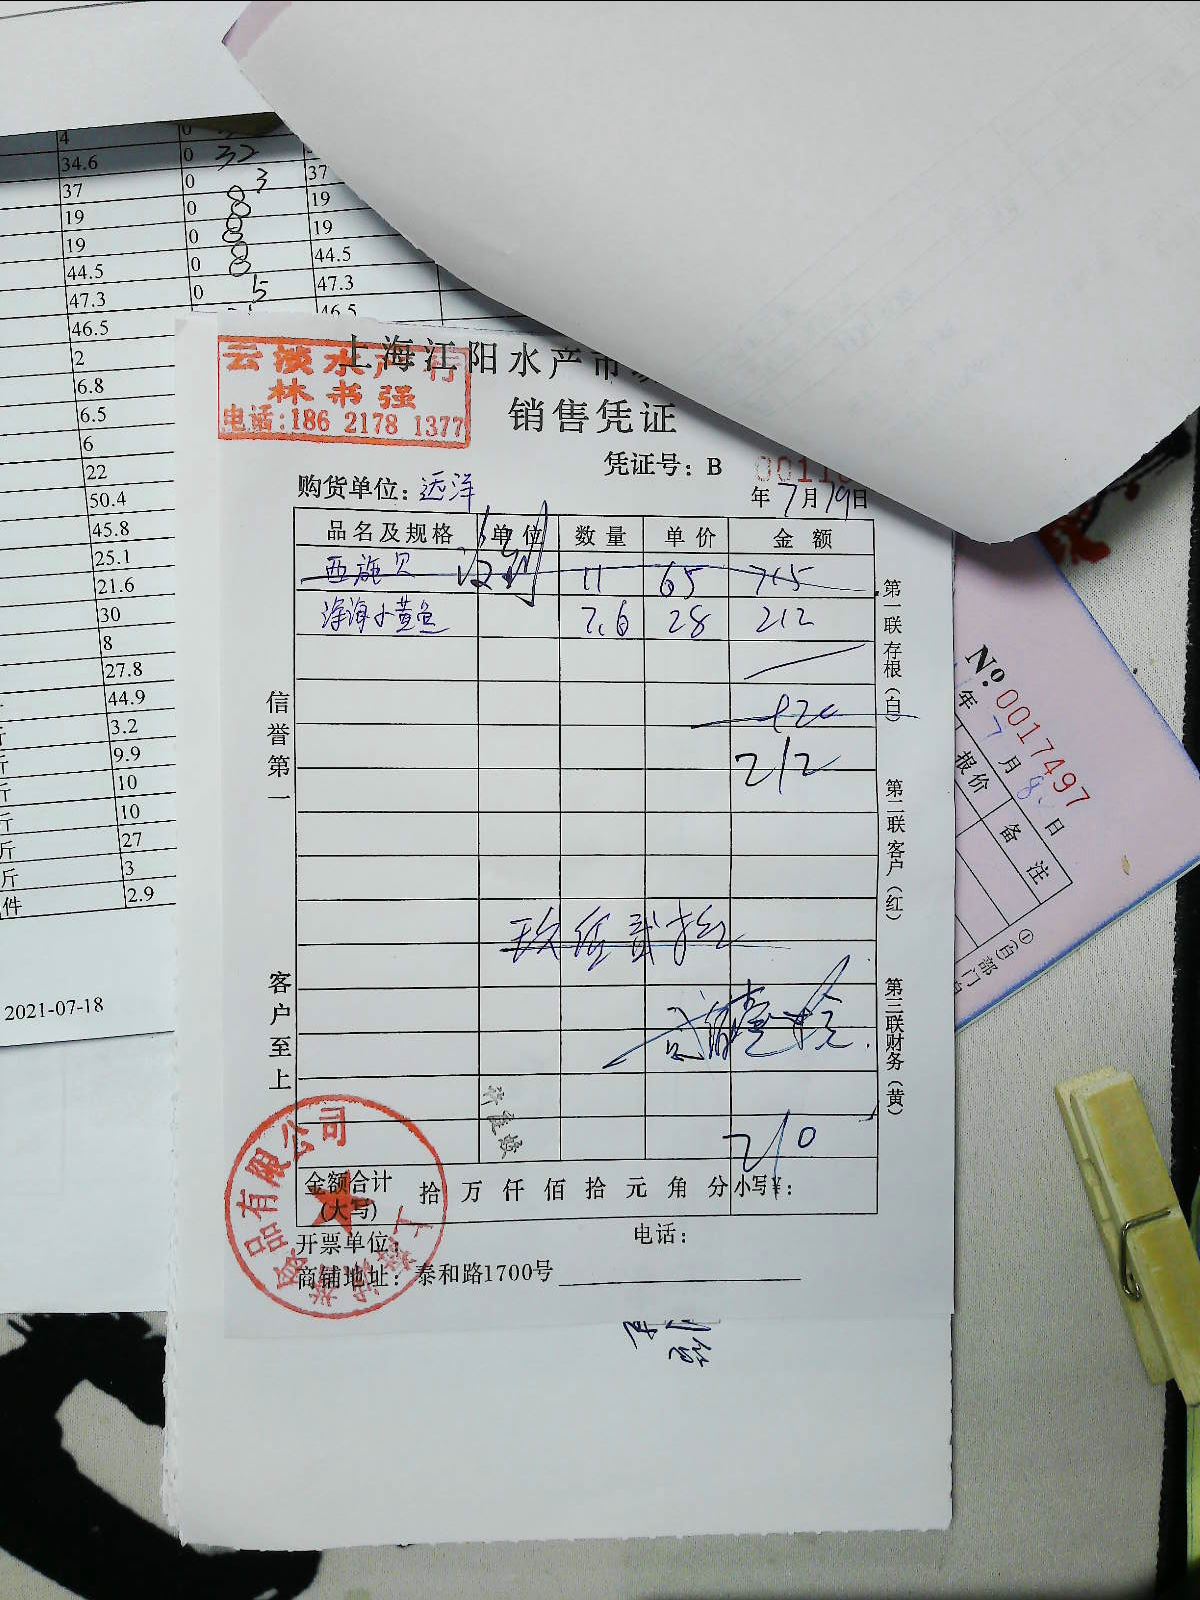 4
34.6 0 32
37 0 3 37
19 0 8 19
19 0 8 19
44.5 0 8 44.5
47.3 0 5 47.3
46.5 46.5
2
6.8
6.5
6
22
50.4
45.8
25.1
21.6
30
8
27.8
44.9
斤 3.2
斤 9.9
斤 10
斤 10
斤 27
斤 3
件 2.9
2021-07-18
云淡水产行
林书强
电话:186 2178 1377
上海江阳水产市
销售凭证
凭证号: B 0011
购货单位: 远洋 年 7 月 19 日
品名及规格 单位 数量 单价 金额
西施贝 11 65 715
深海小黄鱼 7.6 28 212
212
玖佰贰拾
210
金额合计(大写) 拾 万 仟 佰 拾 元 角 分 小写¥:
开票单位: 电话:
商铺地址: 泰和路1700号
信誉第一
客户至上
第一联 存根(白)
第二联 客户(红)
第三联 财务(黄)
品有限公司
№ 0017497
年 7 月 8 日
报价 备注
①(白)部门